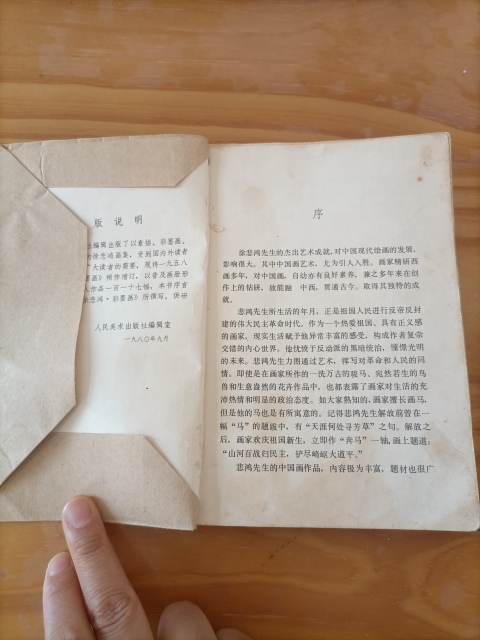 版说明
社编辑出版了以素描、彩墨画、
徐悲鸿画集，受到国内外读者
广大读者的需要，现将一九五八
墨画》稍作增订，以普及画册形
人作品一百一十七幅，本书序言
徐悲鸿·彩墨画》所撰写，供研
人民美术出版社编辑室
一九八〇年九月
序
徐悲鸿先生的杰出艺术成就，对中国现代绘画的发展，
影响很大，其中中国画艺术，尤为引人入胜。画家精研西
画多年，对中国画，自幼亦有良好素养，兼之多年来在创
作上的钻研，故能融 中西，贯通古今，取得其独特的成
就。
悲鸿先生所生活的年月，正是祖国人民进行反帝反封
建的伟大民主革命时代，作为一个热爱祖国、具有正义感
的画家，现实生活赋予他异常丰富的感受，构成作者复杂
交错的内心世界。他忧愤于反动派的黑暗统治，憧憬光明
的未来。悲鸿先生力图通过艺术，挥写对革命和人民的同
情。即使是在画家所作的一洗万古的骏马、宛然若生的鸟
兽和生意盎然的花卉作品中，也都表露了画家对生活的充
沛热情和明显的政治态度。如大家熟知的，画家擅长画马，
但是他的马也是有所寓意的。记得悲鸿先生解放前曾在一
幅“马”的题跋中，有“天涯何处寻芳草”之句。解放之
后，画家欢庆祖国新生，立即作“奔马”一轴，画上题道：
“山河百战归民主，铲尽崎岖大道平。”
悲鸿先生的中国画作品，内容极为丰富，题材也很广